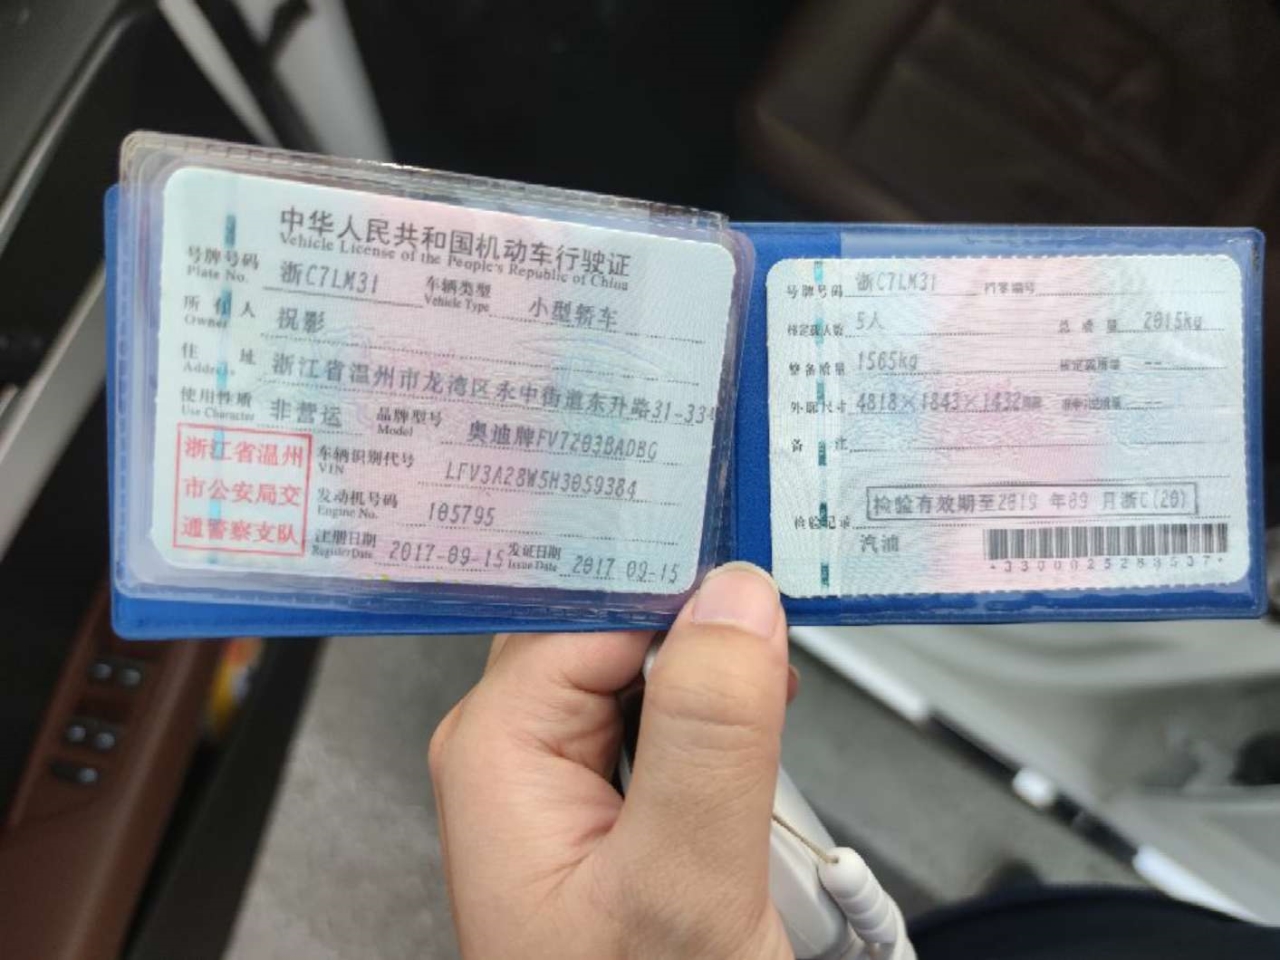 中华人民共和国机动车行驶证
Vehicle License of the People's Republic of China
号牌号码 浙C7LM31 车辆类型 小型轿车
Plate No. Vehicle Type
所有人 祝影
Owner
住址 浙江省温州市龙湾区永中街道东升路31-33
Address
使用性质 非营运 品牌型号 奥迪牌FV7203BADBG
Use Character Model
浙江省温州
市公安局交
通警察支队
车辆识别代号 LFV3A28W5H3059384
VIN
发动机号码 105795
Engine No.
注册日期 2017-09-15 发证日期 2017-09-15
Register Date Issue Date
号牌号码 浙C7LM31 档案编号
核定载人数 5人 总质量 2015kg
整备质量 1565kg 核定载质量 --
外廓尺寸 4818×1843×1432 --
备注
检验有效期至2019年09月浙C(20)
检验记录
汽油